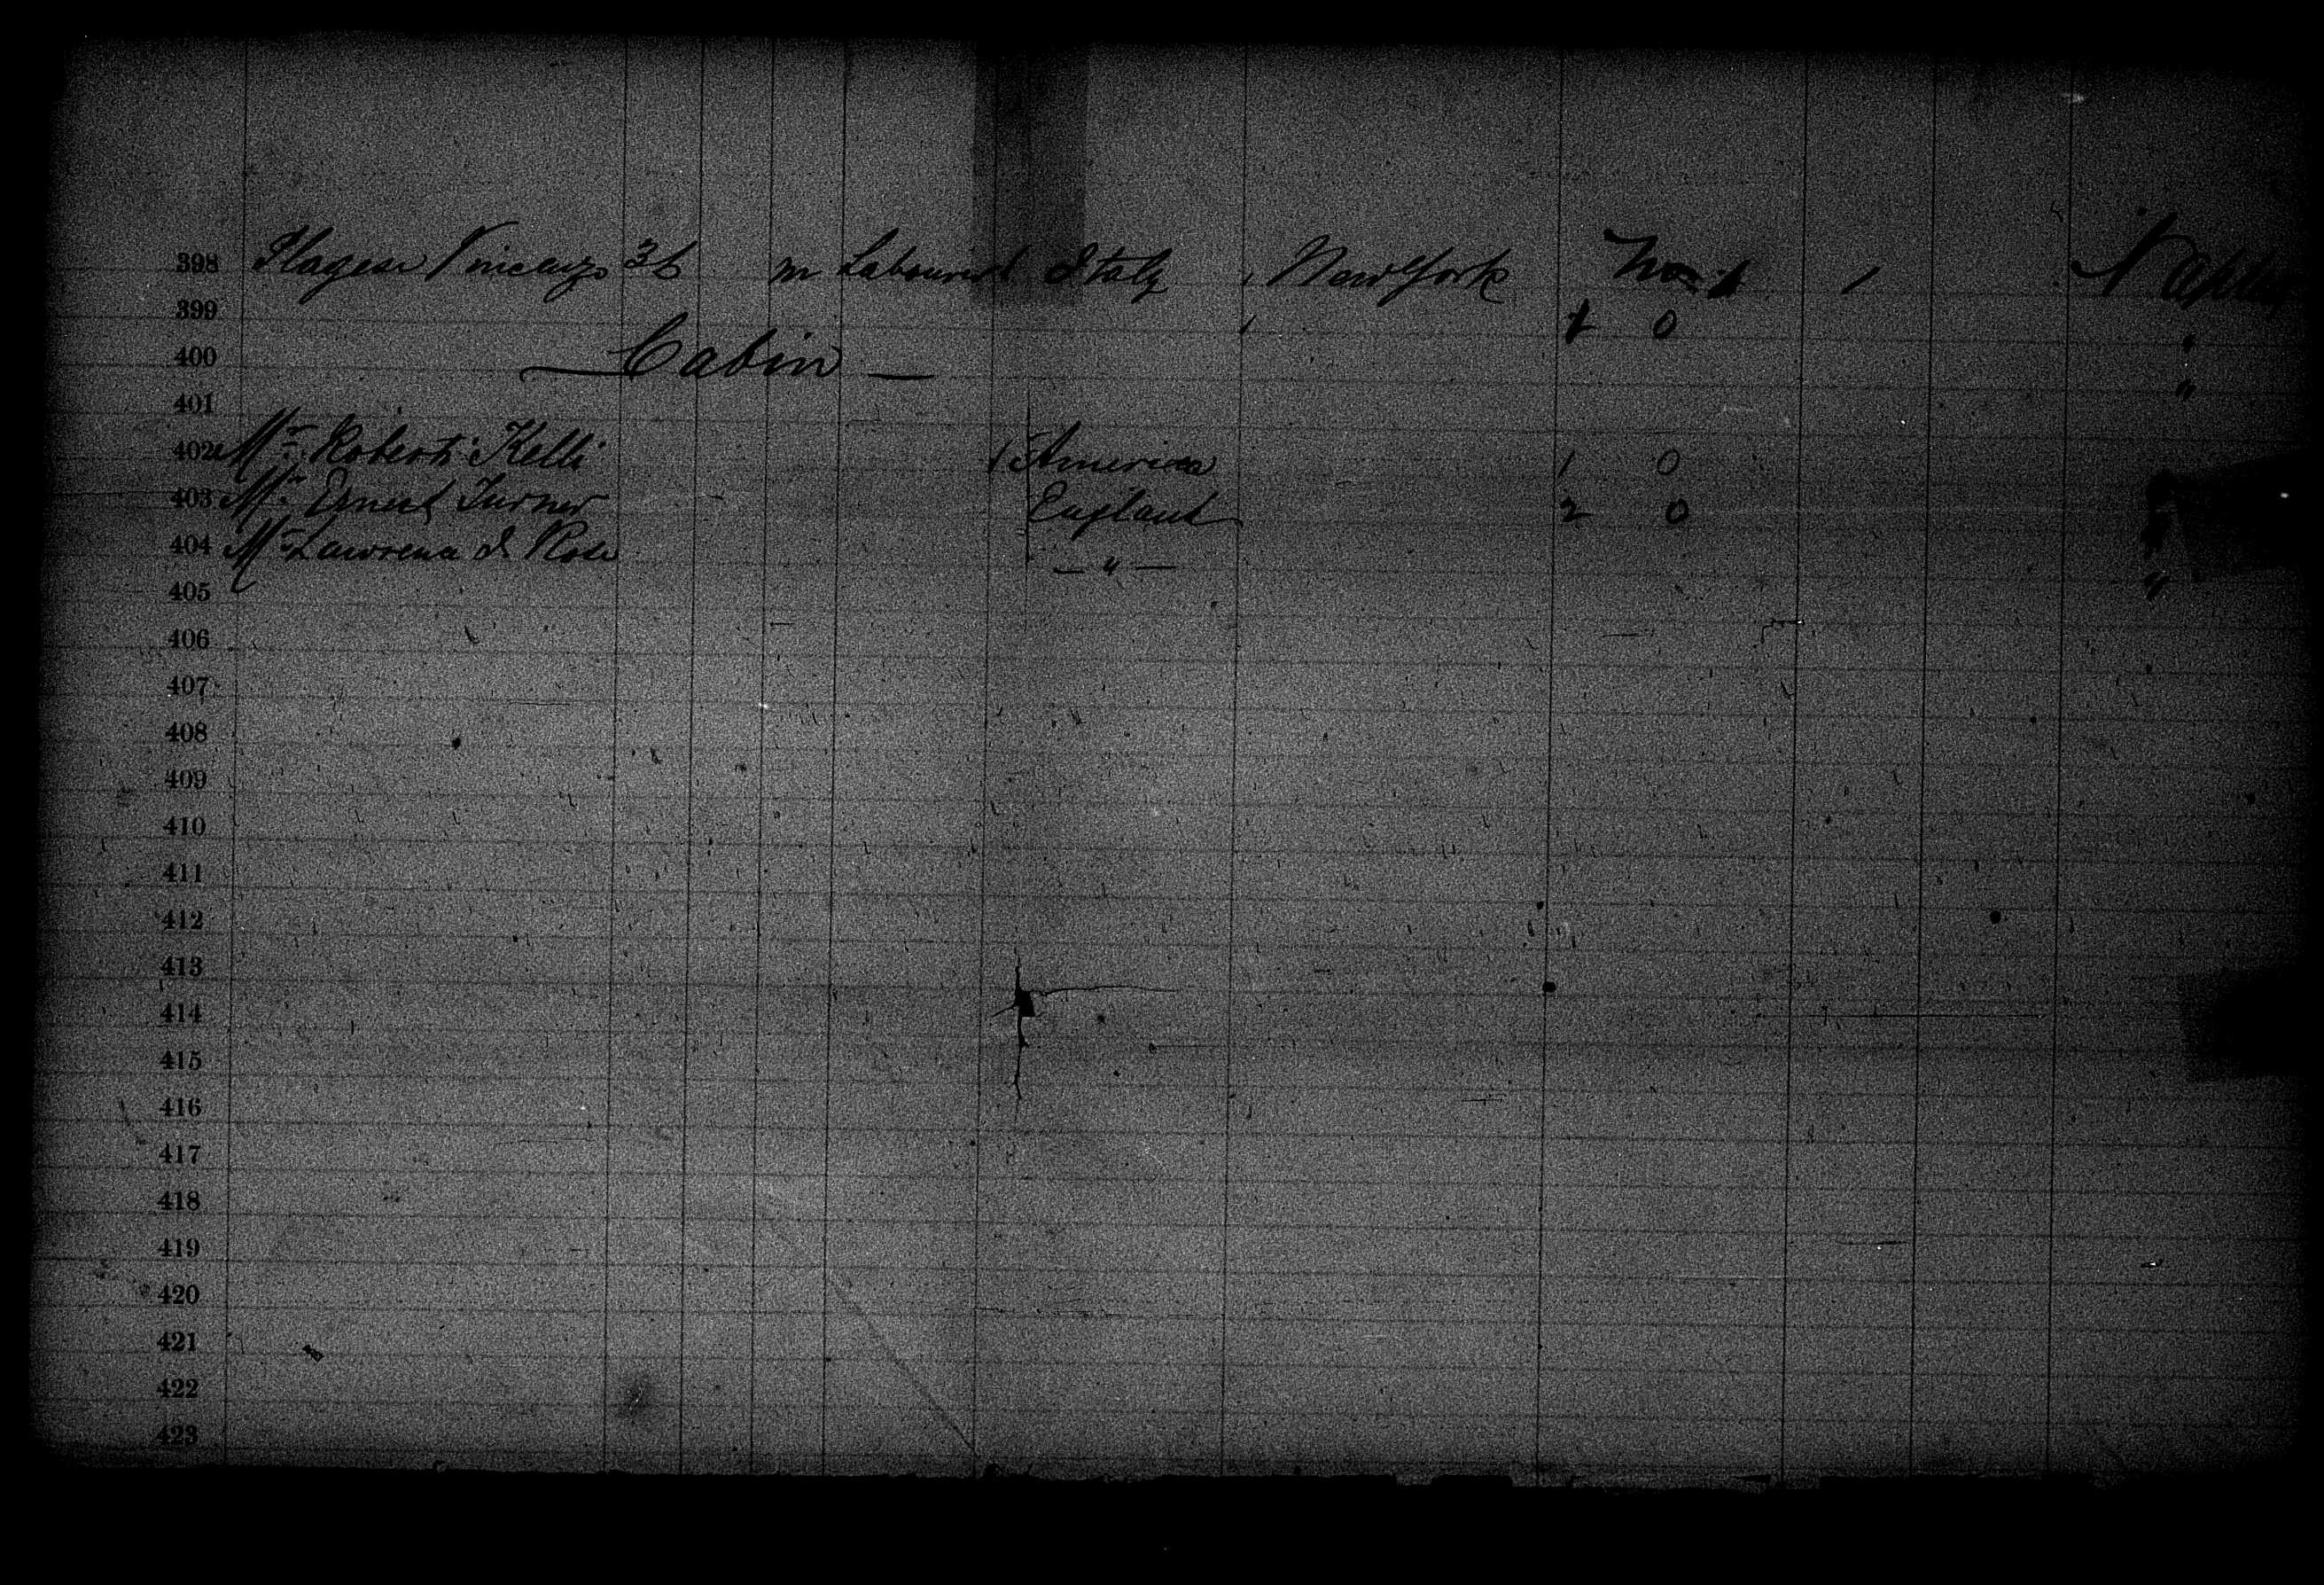 398 Vincenzo 36 m Labourer Italy New York 1 Naples
399 1 0 "
400 Cabin "
401
402 Mr. Robert Kelli America 1 0
403 Mr. Ernest Turner England 2 0 "
404 Mr. Lawrence Rose — " — "
405
406
407
408
409
410
411
412
413
414
415
416
417
418
419
420
421
422
423